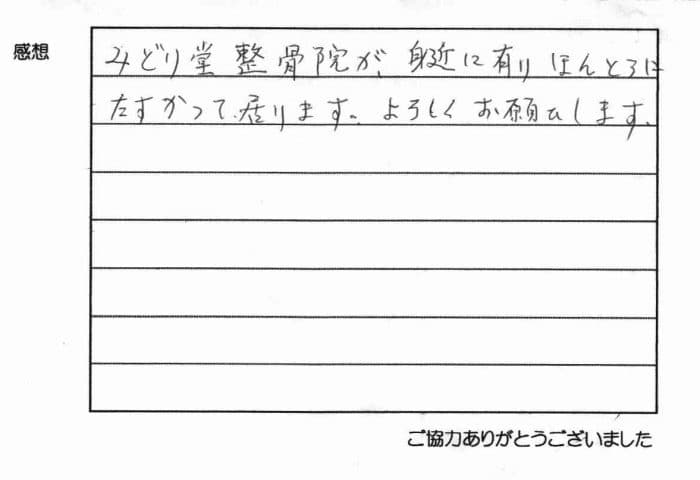 感想
みどり堂整骨院が、身近に有りほんとうに
たすかって居ります。よろしくお願いします。
ご協力ありがとうございました